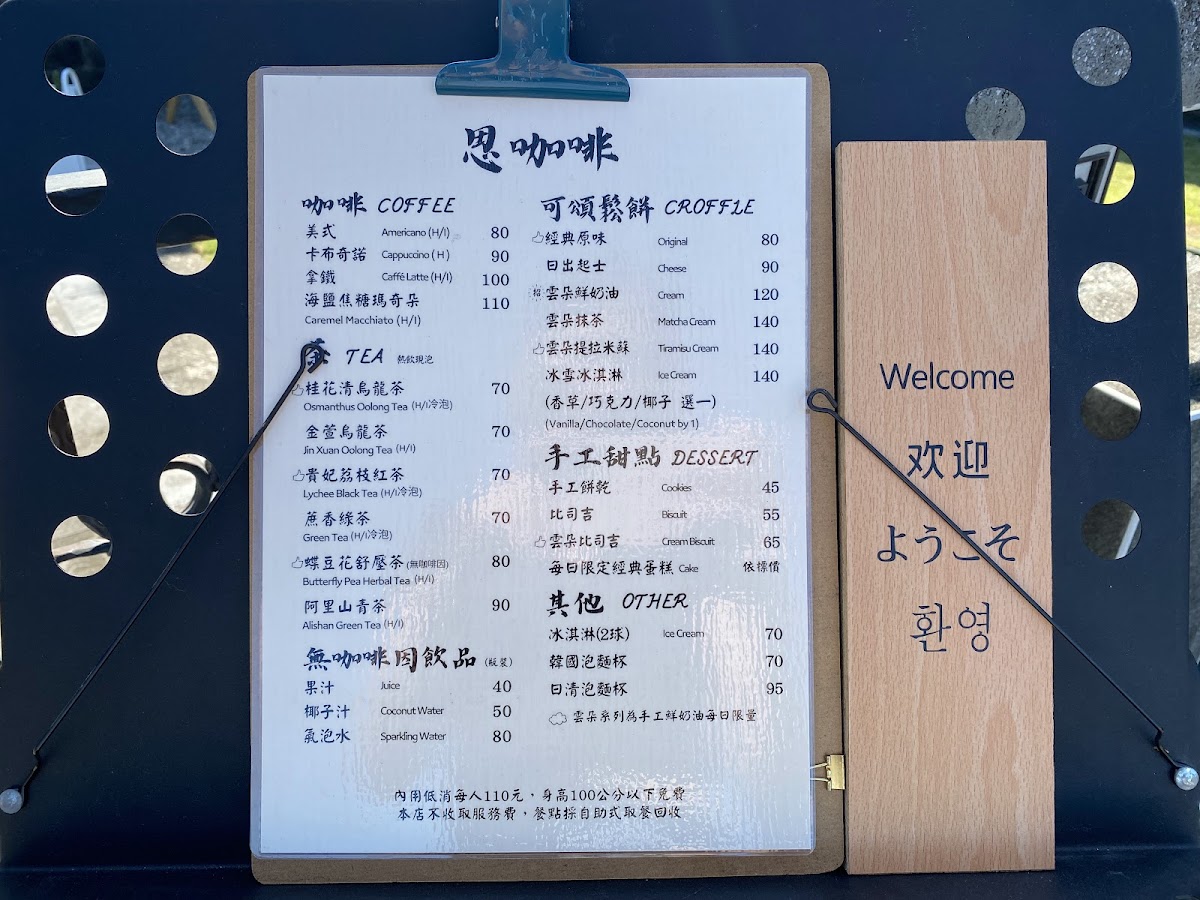 恩咖啡
咖啡 COFFEE
美式 Americano (H/I) 80
卡布奇諾 Cappuccino ( H ) 90
拿鐵 Caffé Latte (H/I) 100
海鹽焦糖瑪奇朵 110
Caremel Macchiato (H/I)
茶 TEA 熱飲現泡
桂花清烏龍茶 70
Osmanthus Oolong Tea (H/I冷泡)
金萱烏龍茶 70
Jin Xuan Oolong Tea (H/I)
貴妃荔枝紅茶 70
Lychee Black Tea (H/I冷泡)
蔗香綠茶 70
Green Tea (H/I冷泡)
蝶豆花舒壓茶(無咖啡因) 80
Butterfly Pea Herbal Tea (H/I)
阿里山青茶 90
Alishan Green Tea (H/I)
無咖啡因飲品 (瓶裝)
果汁 Juice 40
椰子汁 Coconut Water 50
氣泡水 Sparkling Water 80
可頌鬆餅 CROFFLE
經典原味 Original 80
日出起士 Cheese 90
招 雲朵鮮奶油 Cream 120
雲朵抹茶 Matcha Cream 140
雲朵提拉米蘇 Tiramisu Cream 140
冰雪冰淇淋 Ice Cream 140
(香草/巧克力/椰子 選一)
(Vanilla/Chocolate/Coconut by 1)
手工甜點 DESSERT
手工餅乾 Cookies 45
比司吉 Biscuit 55
雲朵比司吉 Cream Biscuit 65
每日限定經典蛋糕 Cake 依標價
其他 OTHER
冰淇淋(2球) Ice Cream 70
韓國泡麵杯 70
日清泡麵杯 95
雲朵系列為手工鮮奶油每日限量
內用低消每人110元，身高100公分以下免費
本店不收取服務費，餐點採自助式取餐回收
Welcome
欢迎
ようこそ
환영